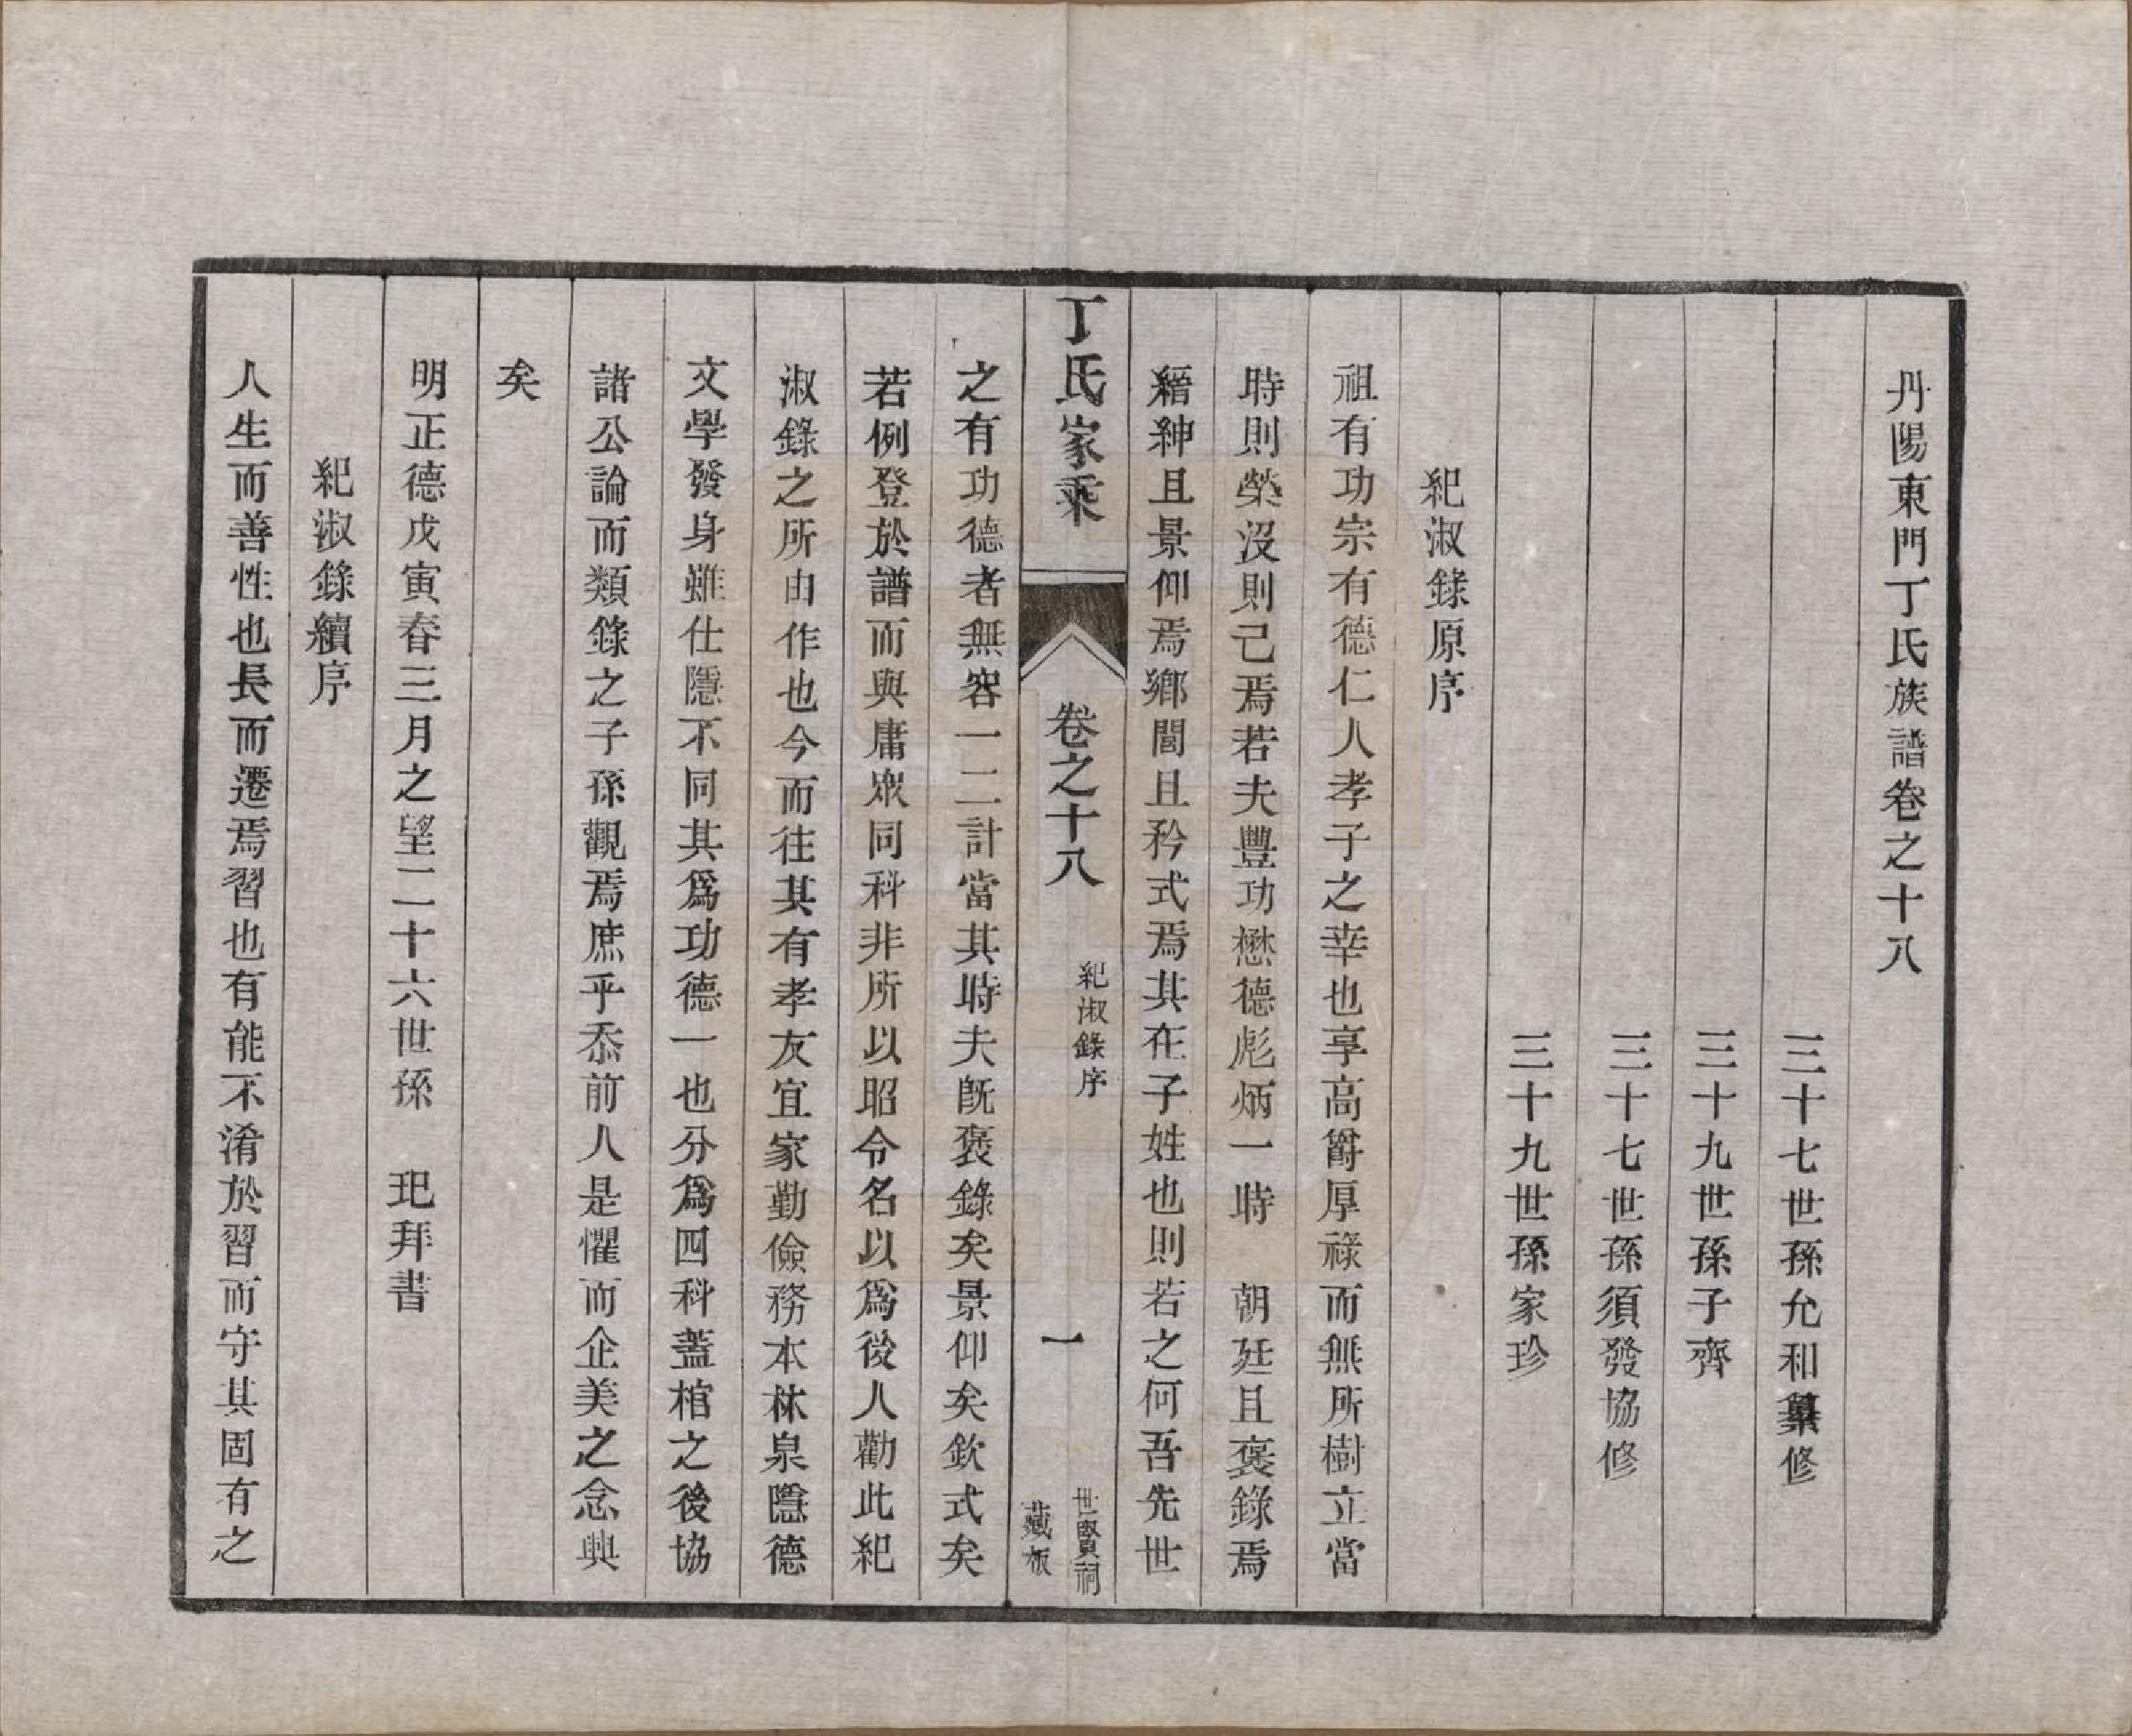 丹陽東門丁氏族譜卷之十八
三十七世孫允和纂修
三十九世孫子齊
三十七世孫須發協修
三十九世孫家珍
紀淑錄原序
祖有功宗有德仁人孝子之幸也享高爵厚祿而無所樹立當
時則榮沒則己焉若夫豐功懋德彪炳一時　朝廷且褒錄焉
縉紳且景仰焉鄉閭且矜式焉其在子姓也則若之何吾先世
丁氏家乘
卷之十八
紀淑錄序
一
世賢祠
藏板
之有功德者無容一二計當其時夫旣褒錄矣景仰矣欽式矣
若例登於譜而與庸眾同科非所以昭令名以爲後人勸此紀
淑錄之所由作也今而往其有孝友宜家勤儉務本林泉隱德
文學發身雖仕隱不同其爲功德一也分爲四科蓋棺之後協
諸公論而類錄之子孫觀焉庶乎忝前人是懼而企美之念興
矣
明正德戊寅春三月之望二十六世孫　玘拜書
紀淑錄續序
人生而善性也長而遷焉習也有能不淆於習而守其固有之